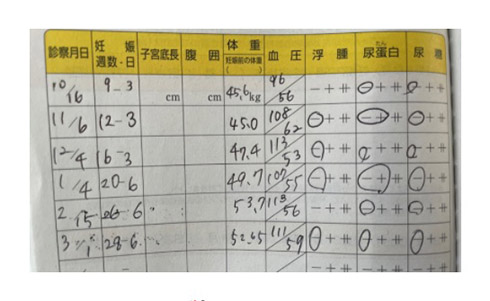 診察月日 妊娠週数・日 子宮底長 腹囲 体重 妊娠前の体重 ( ) 血圧 浮腫 尿蛋白 尿糖
10/16 9-3 cm cm 45.6kg 96/56 - + ⧺ - + ⧺ - + ⧺
11/6 12-3 45.0 108/62 - + ⧺ - + ⧺ - + ⧺
12/4 16-3 47.4 113/53 - + ⧺ - + ⧺ - + ⧺
1/4 20-6 49.7 107/55 - + ⧺ - + ⧺ - + ⧺
2/15 -6 53.7 113/56 - + ⧺ - + ⧺ - + ⧺
3/ 28-6 52.65 111/59 - + ⧺ - + ⧺ - + ⧺
- + ⧺ - + ⧺ - + ⧺